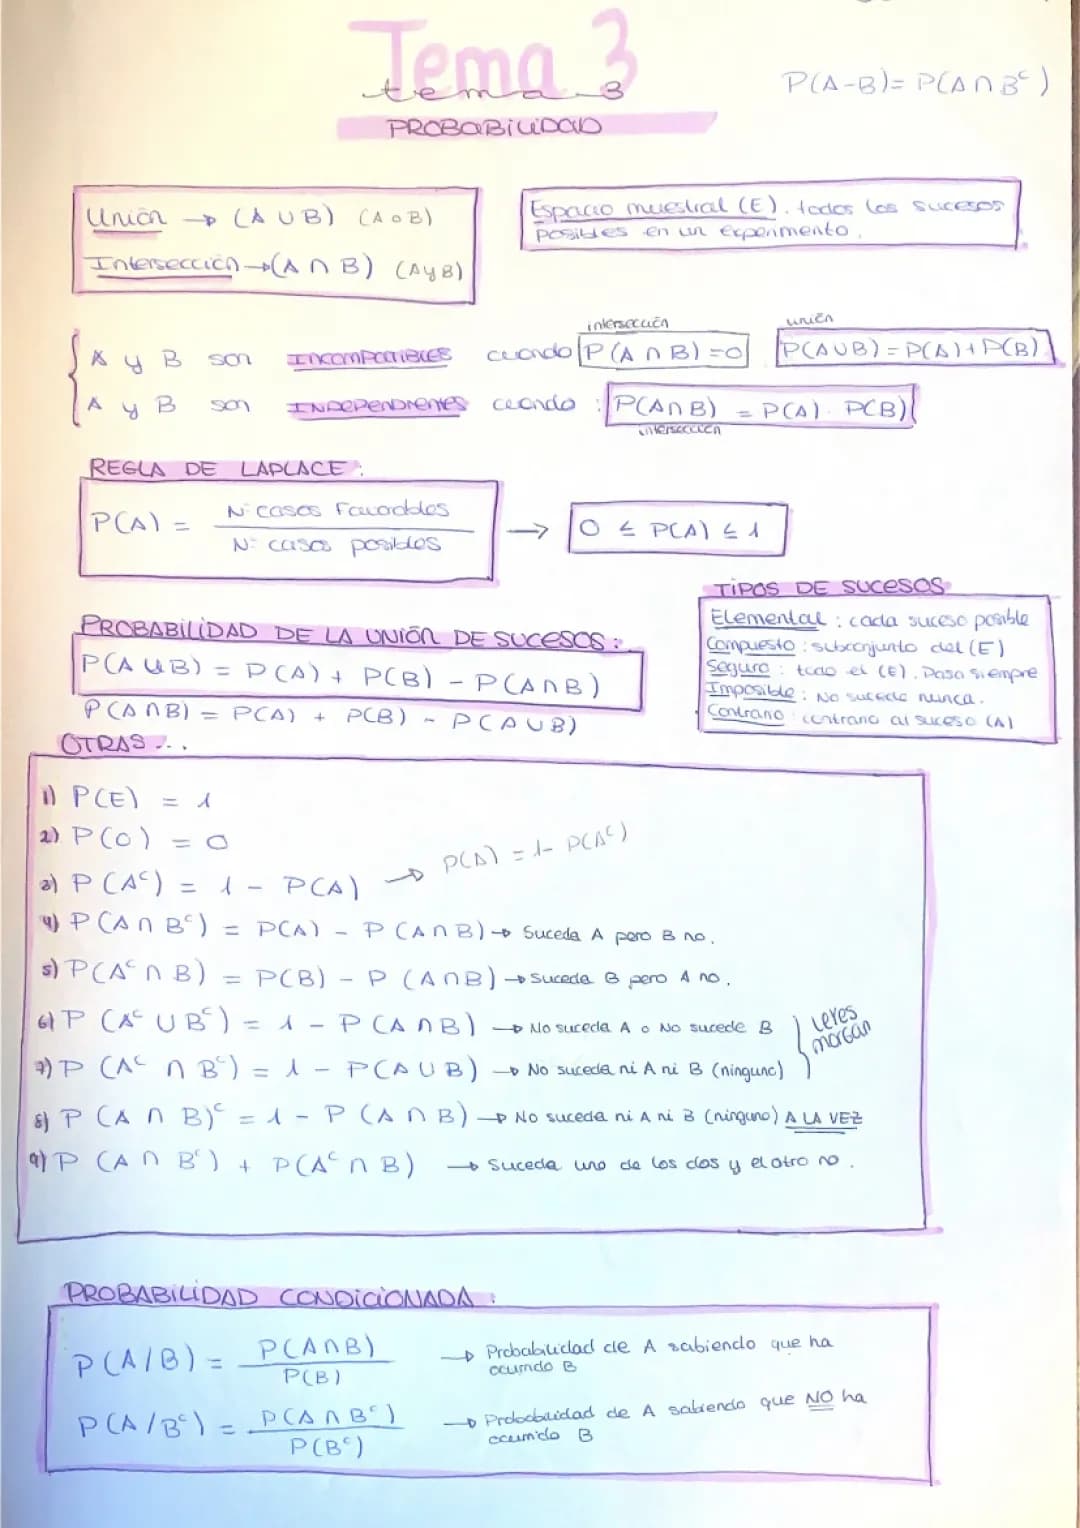 Tema 3
tema 3
P(A-B)= P(A∩Bᶜ)
PROBABILIDAD
Unión → (A ∪ B) (A o B)
Intersección → (A ∩ B) (A y B)
Espacio muestral (E). todos los sucesos
posibles en un experimento.
intersección
unión
A y B son INCOMPATIBLES cuando P(A ∩ B) = 0 P(A∪B) = P(A) + P(B)
A y B son INDEPENDIENTES cuando : P(A∩B) = P(A) · P(B)
intersección
REGLA DE LAPLACE:
P(A) = Nº casos Favorables / Nº casos posibles → 0 ≤ P(A) ≤ 1
TIPOS DE SUCESOS
Elemental : cada suceso posible
Compuesto : subconjunto del (E)
Seguro : todo el (E). Pasa siempre
Imposible : No sucede nunca.
Contrario : contrario al suceso (A)
PROBABILIDAD DE LA UNIÓN DE SUCESOS :
P(A ∪ B) = P(A) + P(B) - P(A∩B)
P(A∩B) = P(A) + P(B) - P(A∪B)
OTRAS...
1) P(E) = 1
2) P(O) = 0
3) P(Aᶜ) = 1 - P(A) → P(A) = 1- P(Aᶜ)
4) P(A ∩ Bᶜ) = P(A) - P(A∩B) → Suceda A pero B no.
5) P(Aᶜ ∩ B) = P(B) - P(A∩B) → Suceda B pero A no.
6) P(Aᶜ ∪ Bᶜ) = 1 - P(A∩B) → No suceda A o No sucede B
leyes
morgan
7) P(Aᶜ ∩ Bᶜ) = 1 - P(A∪B) → No suceda ni A ni B (ninguno)
8) P(A ∩ B)ᶜ = 1 - P(A∩B) → No suceda ni A ni B (ninguno) A LA VEZ
9) P(A ∩ Bᶜ) + P(Aᶜ ∩ B) → Suceda uno de los dos y el otro no.
PROBABILIDAD CONDICIONADA :
P(A/B) = P(A∩B) / P(B) → Probabilidad de A sabiendo que ha
ocurrido B
P(A/Bᶜ) = P(A∩Bᶜ) / P(Bᶜ) → Probabilidad de A sabiendo que NO ha
ocurrido B